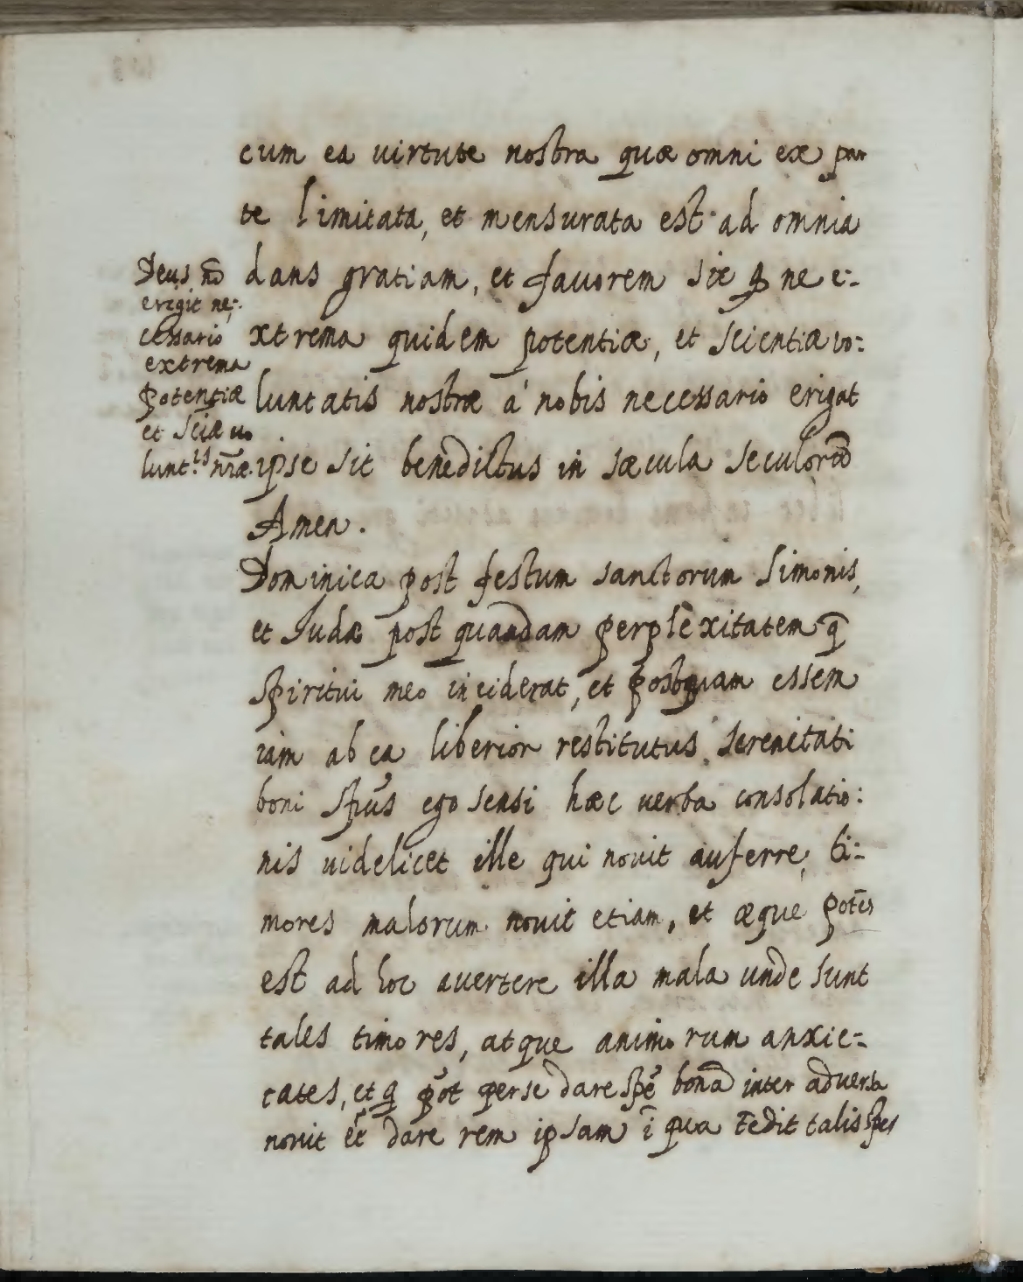 cum ea uirtute nostra quæ omni ex par
te limitata, et mensurata est ad omnia
dans gratiam, et fauorem sic q̃ ne e-:
xtrema quidem potentiæ, et scientiæ uo:
luntatis nostræ à nobis necessario exigat
ipse sit benedictus in sæcula seculorũ
Amen.
Deus nõ
exigit ne-:
cessario
extrema
potentiæ
et sciæ uo
lunt.is nr̃æ.
Dominica post festum sanctorum Simonis,
et Iudæ post quandam perplexitatem q̃
spiritui meo inciderat, et postquam essem
iam ab ea liberior restitutus serenitati
boni sp̃us ego sensi hæc uerba consolatio:
nis uidelicet ille qui nouit auferre, ti-:
mores malorum nouit etiam, et æque potẽs
est ad hoc auertere illa mala unde sunt
tales timores, atque animorum anxie-:
tates, et q̃ põt per se dare spẽ bonã inter aduersa
nouit et̃ dare rem ipsam ĩ qua tẽdit talis spes